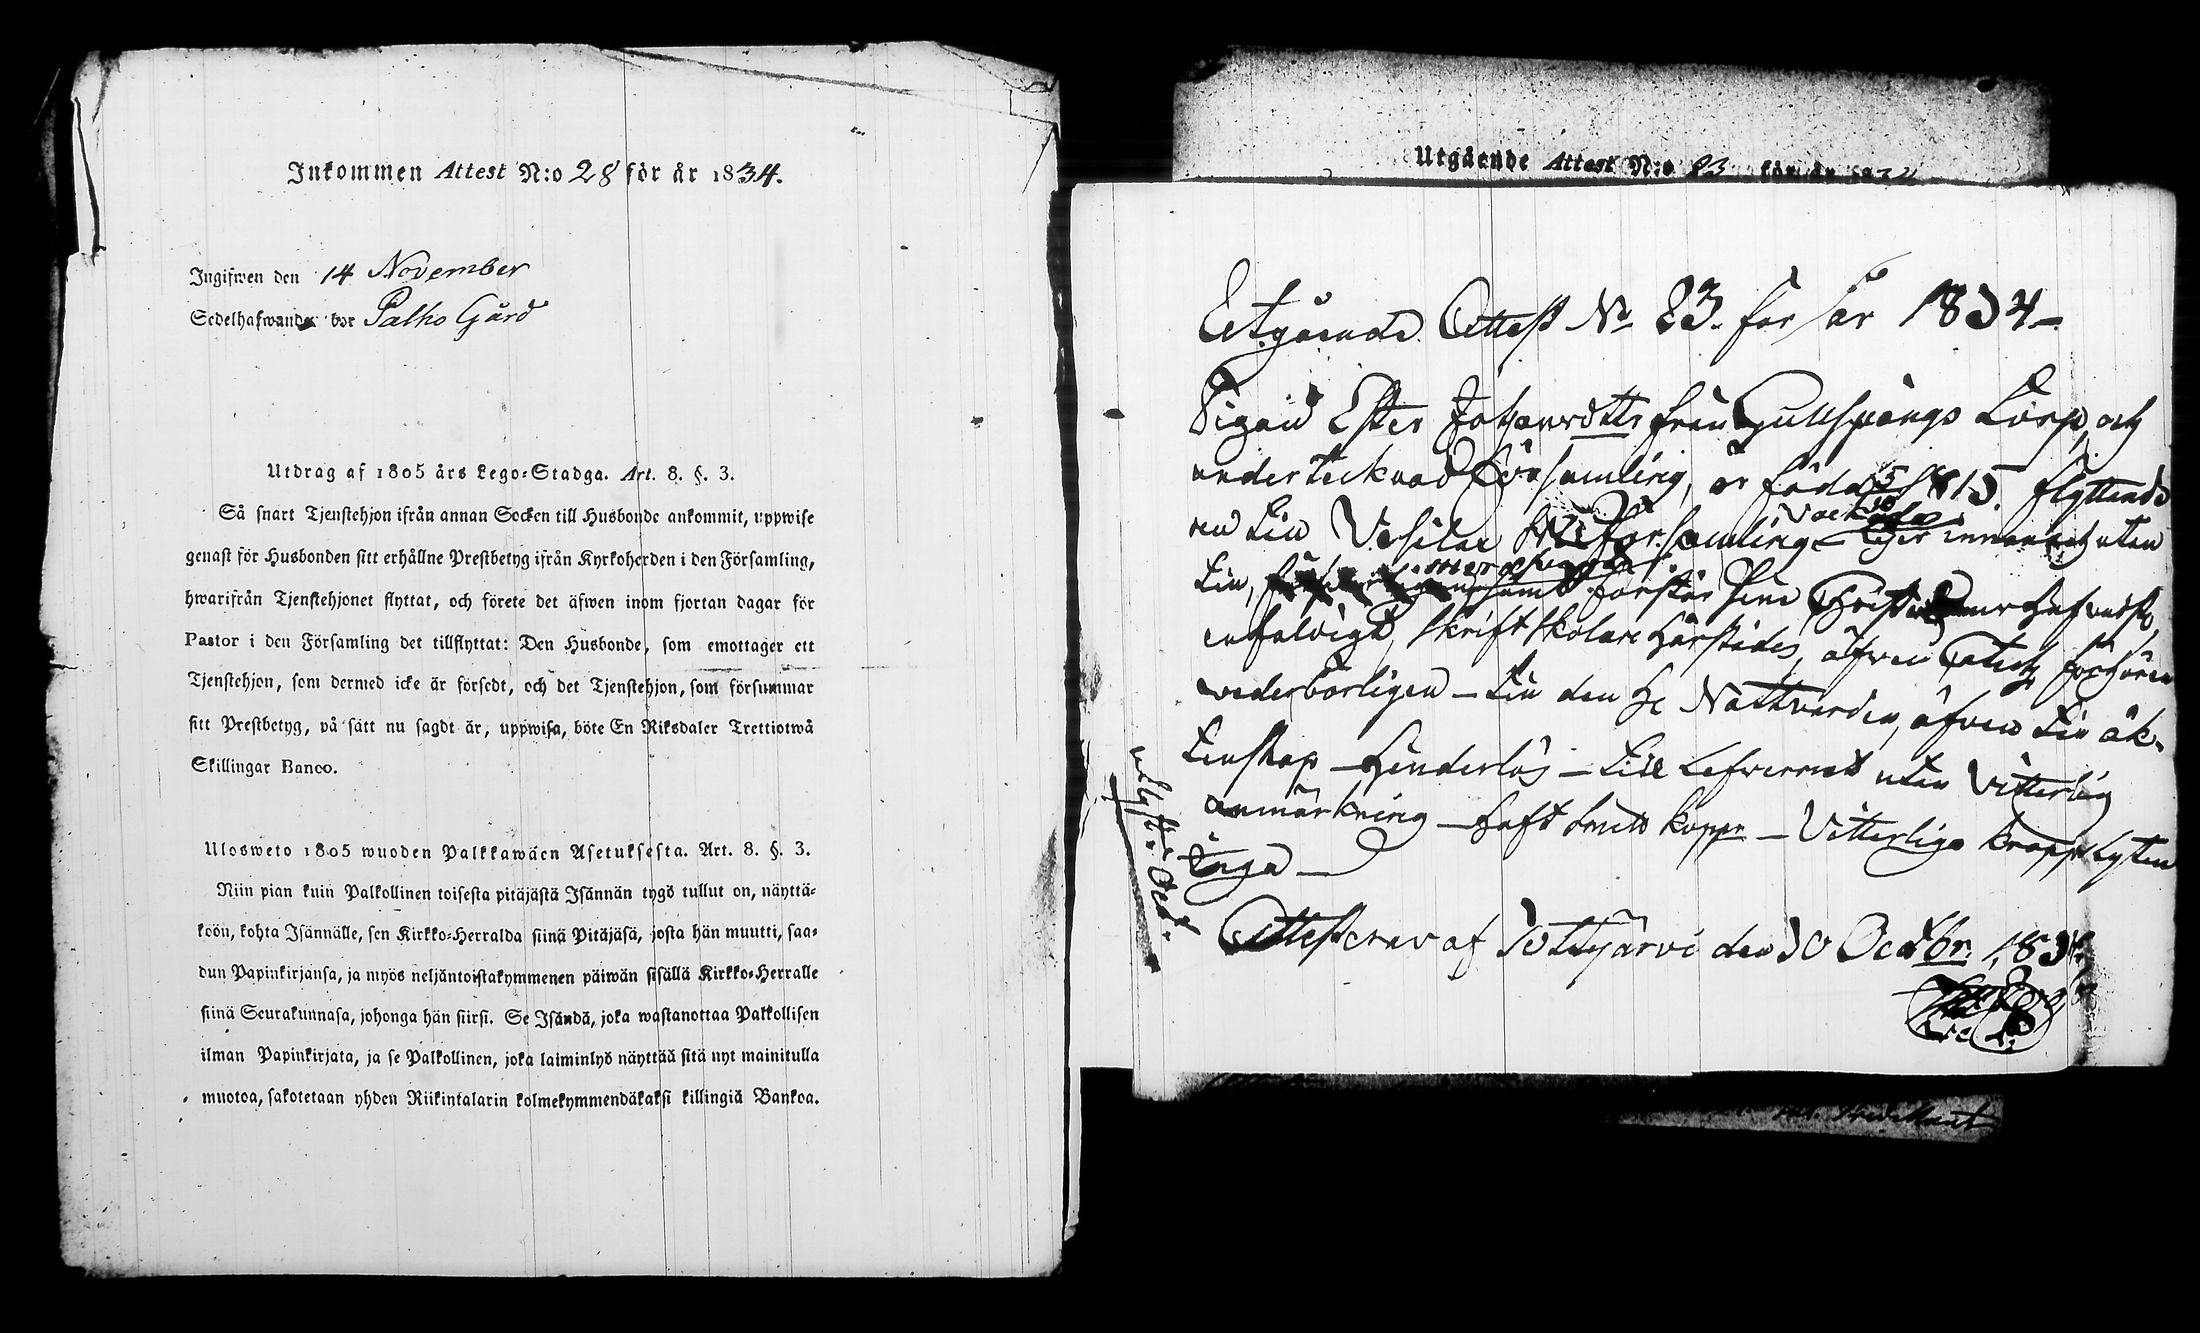 Inkommen Attest N:o 28 för år 1834.
Ingifwen den 14 November
Sedelhafwande bor Palho Gård
Utdrag af 1805 års Lego-Stadga. Art. 8. §. 3.
Så snart Tjenstehjon ifrån annan Socken till Husbonde ankommit, uppwise
genast för Husbonden sitt erhållne Prestbetyg ifrån Kyrkoherden i den Församling,
hwarifrån Tjenstehjonet flyttat, och förete det äfwen inom fjortan dagar för
Pastor i den Församling det tillflyttat: Den Husbonde, som emottager ett
Tjenstehjon, som dermed icke är försedt, och det Tjenstehjon, som försummar
sitt Prestbetyg, på sätt nu sagdt är, uppwisa, böte En Riksdaler Trettiotwå
Skillingar Banco.
Ulosweto 1805 wuoden Palkkawäen Asetuksesta. Art. 8. §. 3.
Niin pian kuin Palkollinen toisesta pitäjästä Isännän tygö tullut on, näyttä-
köön, kohta Isännälle, sen Kirkko-Herralda siinä Pitäjäsä, josta hän muutti, saa-
dun Papinkirjansa, ja myös neljäntoistakymmenen päiwän sisällä Kirkko-Herralle
siinä Seurakunnasa, johonga hän siirsi. Se Isändä, joka wastanottaa Palkollisen
ilman Papinkirjata, ja se Palkollinen, joka laiminlyö näyttää sitä nyt mainitulla
muotoa, sakotetaan yhden Riikintalarin kolmekymmendäkaksi killingiä Bankoa.
Utgående Attest N:o 83 för år 1834
Utgående Attest No 83. för år 1834 –
Pigan Ester Johansdttr från Gullspångs Torp, och
undertecknad Församling, är född 5/10 1815. flyttande
nu till Församling – innan och utan
till, samt förstår sine Christen
enfaldigt, skriftskolan härstädes, äfven Catech förhören
vederbörligen – till den H. Nattvarden, äfven till äk-
tenskap – Hinderlös – till Lefvernet utan Vitterlig
anmärkning – Haft koppor – Vitterliga kroppslyten
Inga –
Attesterar af Tottijärvi den 30 Octobr. 1834